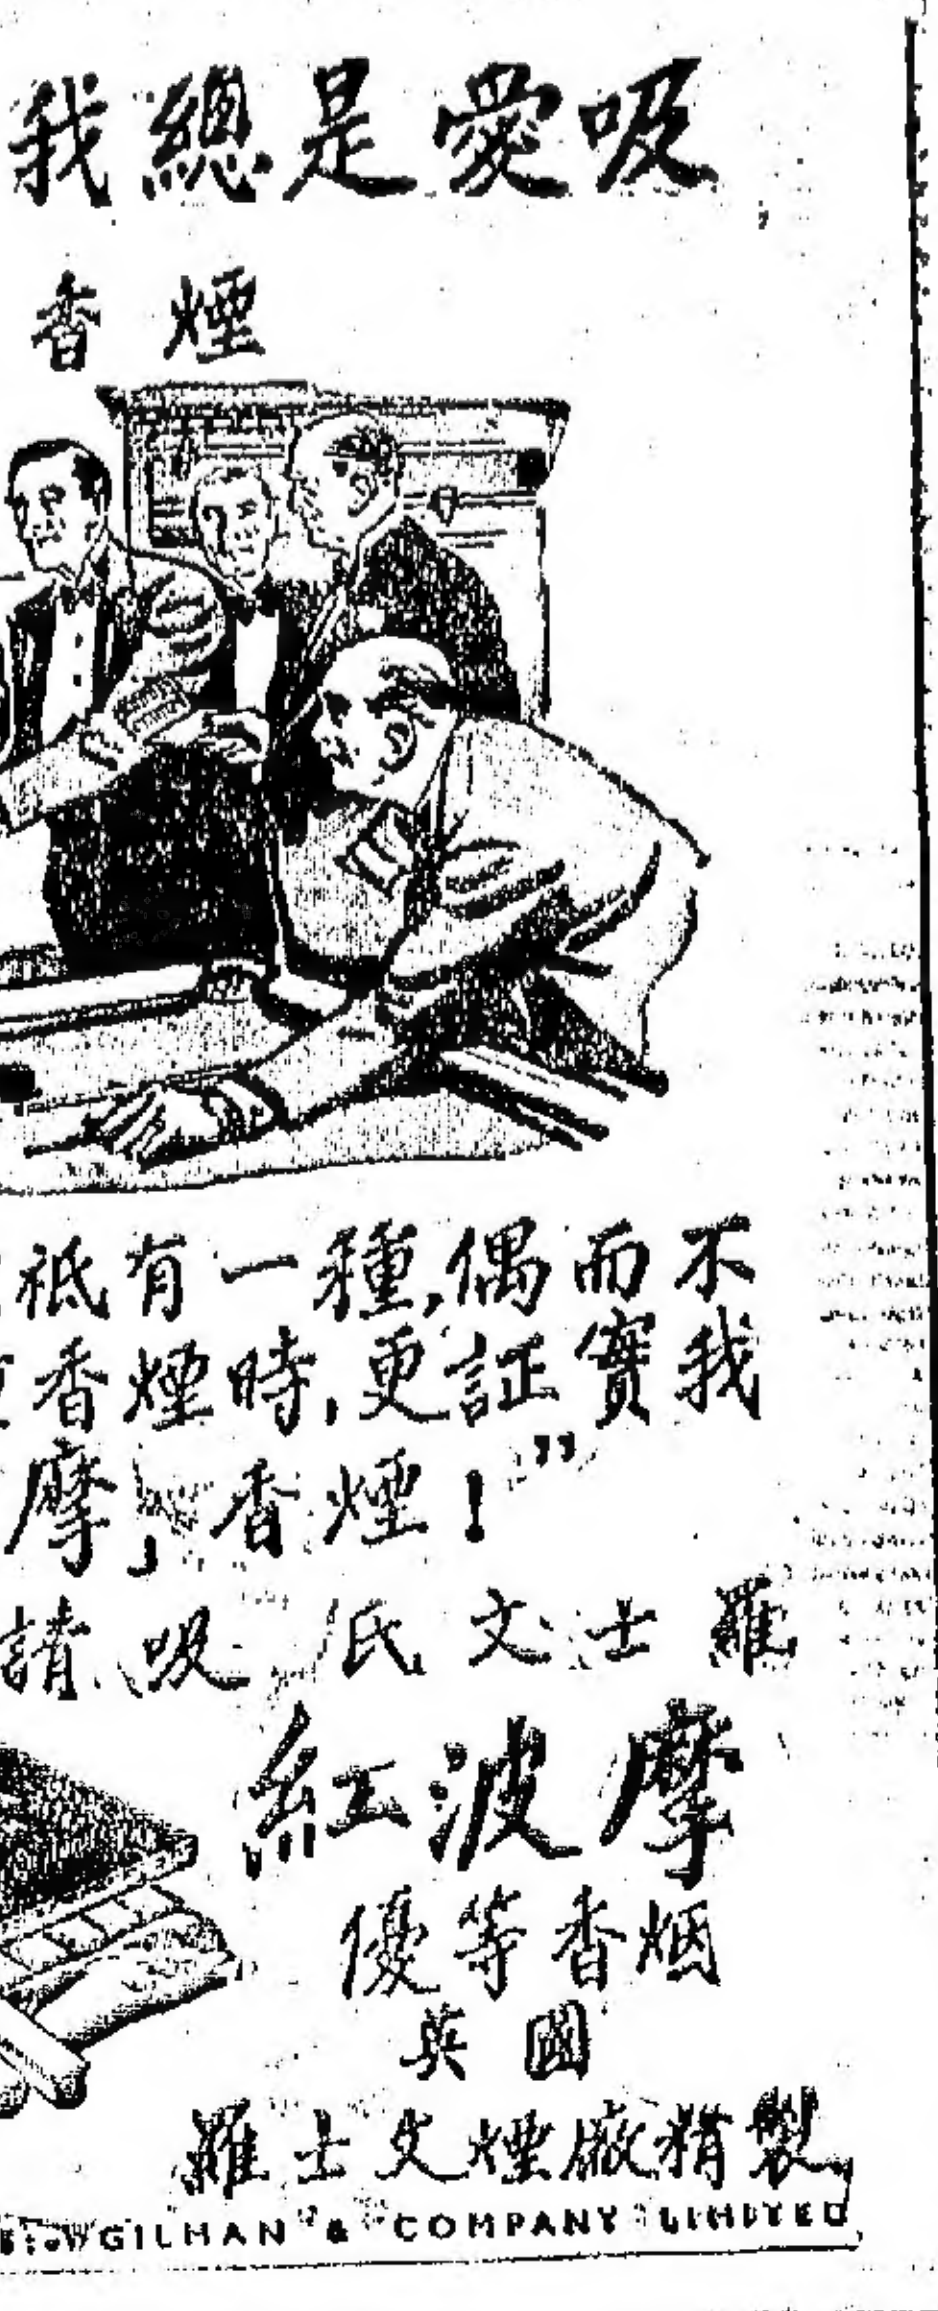 我總是愛吸
香煙
祗有一種,偶而不
香煙時,更証實我
摩」香煙!”
請吸 氏文士羅
紅波摩
優等香烟
英國
羅士文煙廠精製
GILMAN & COMPANY LIMITED